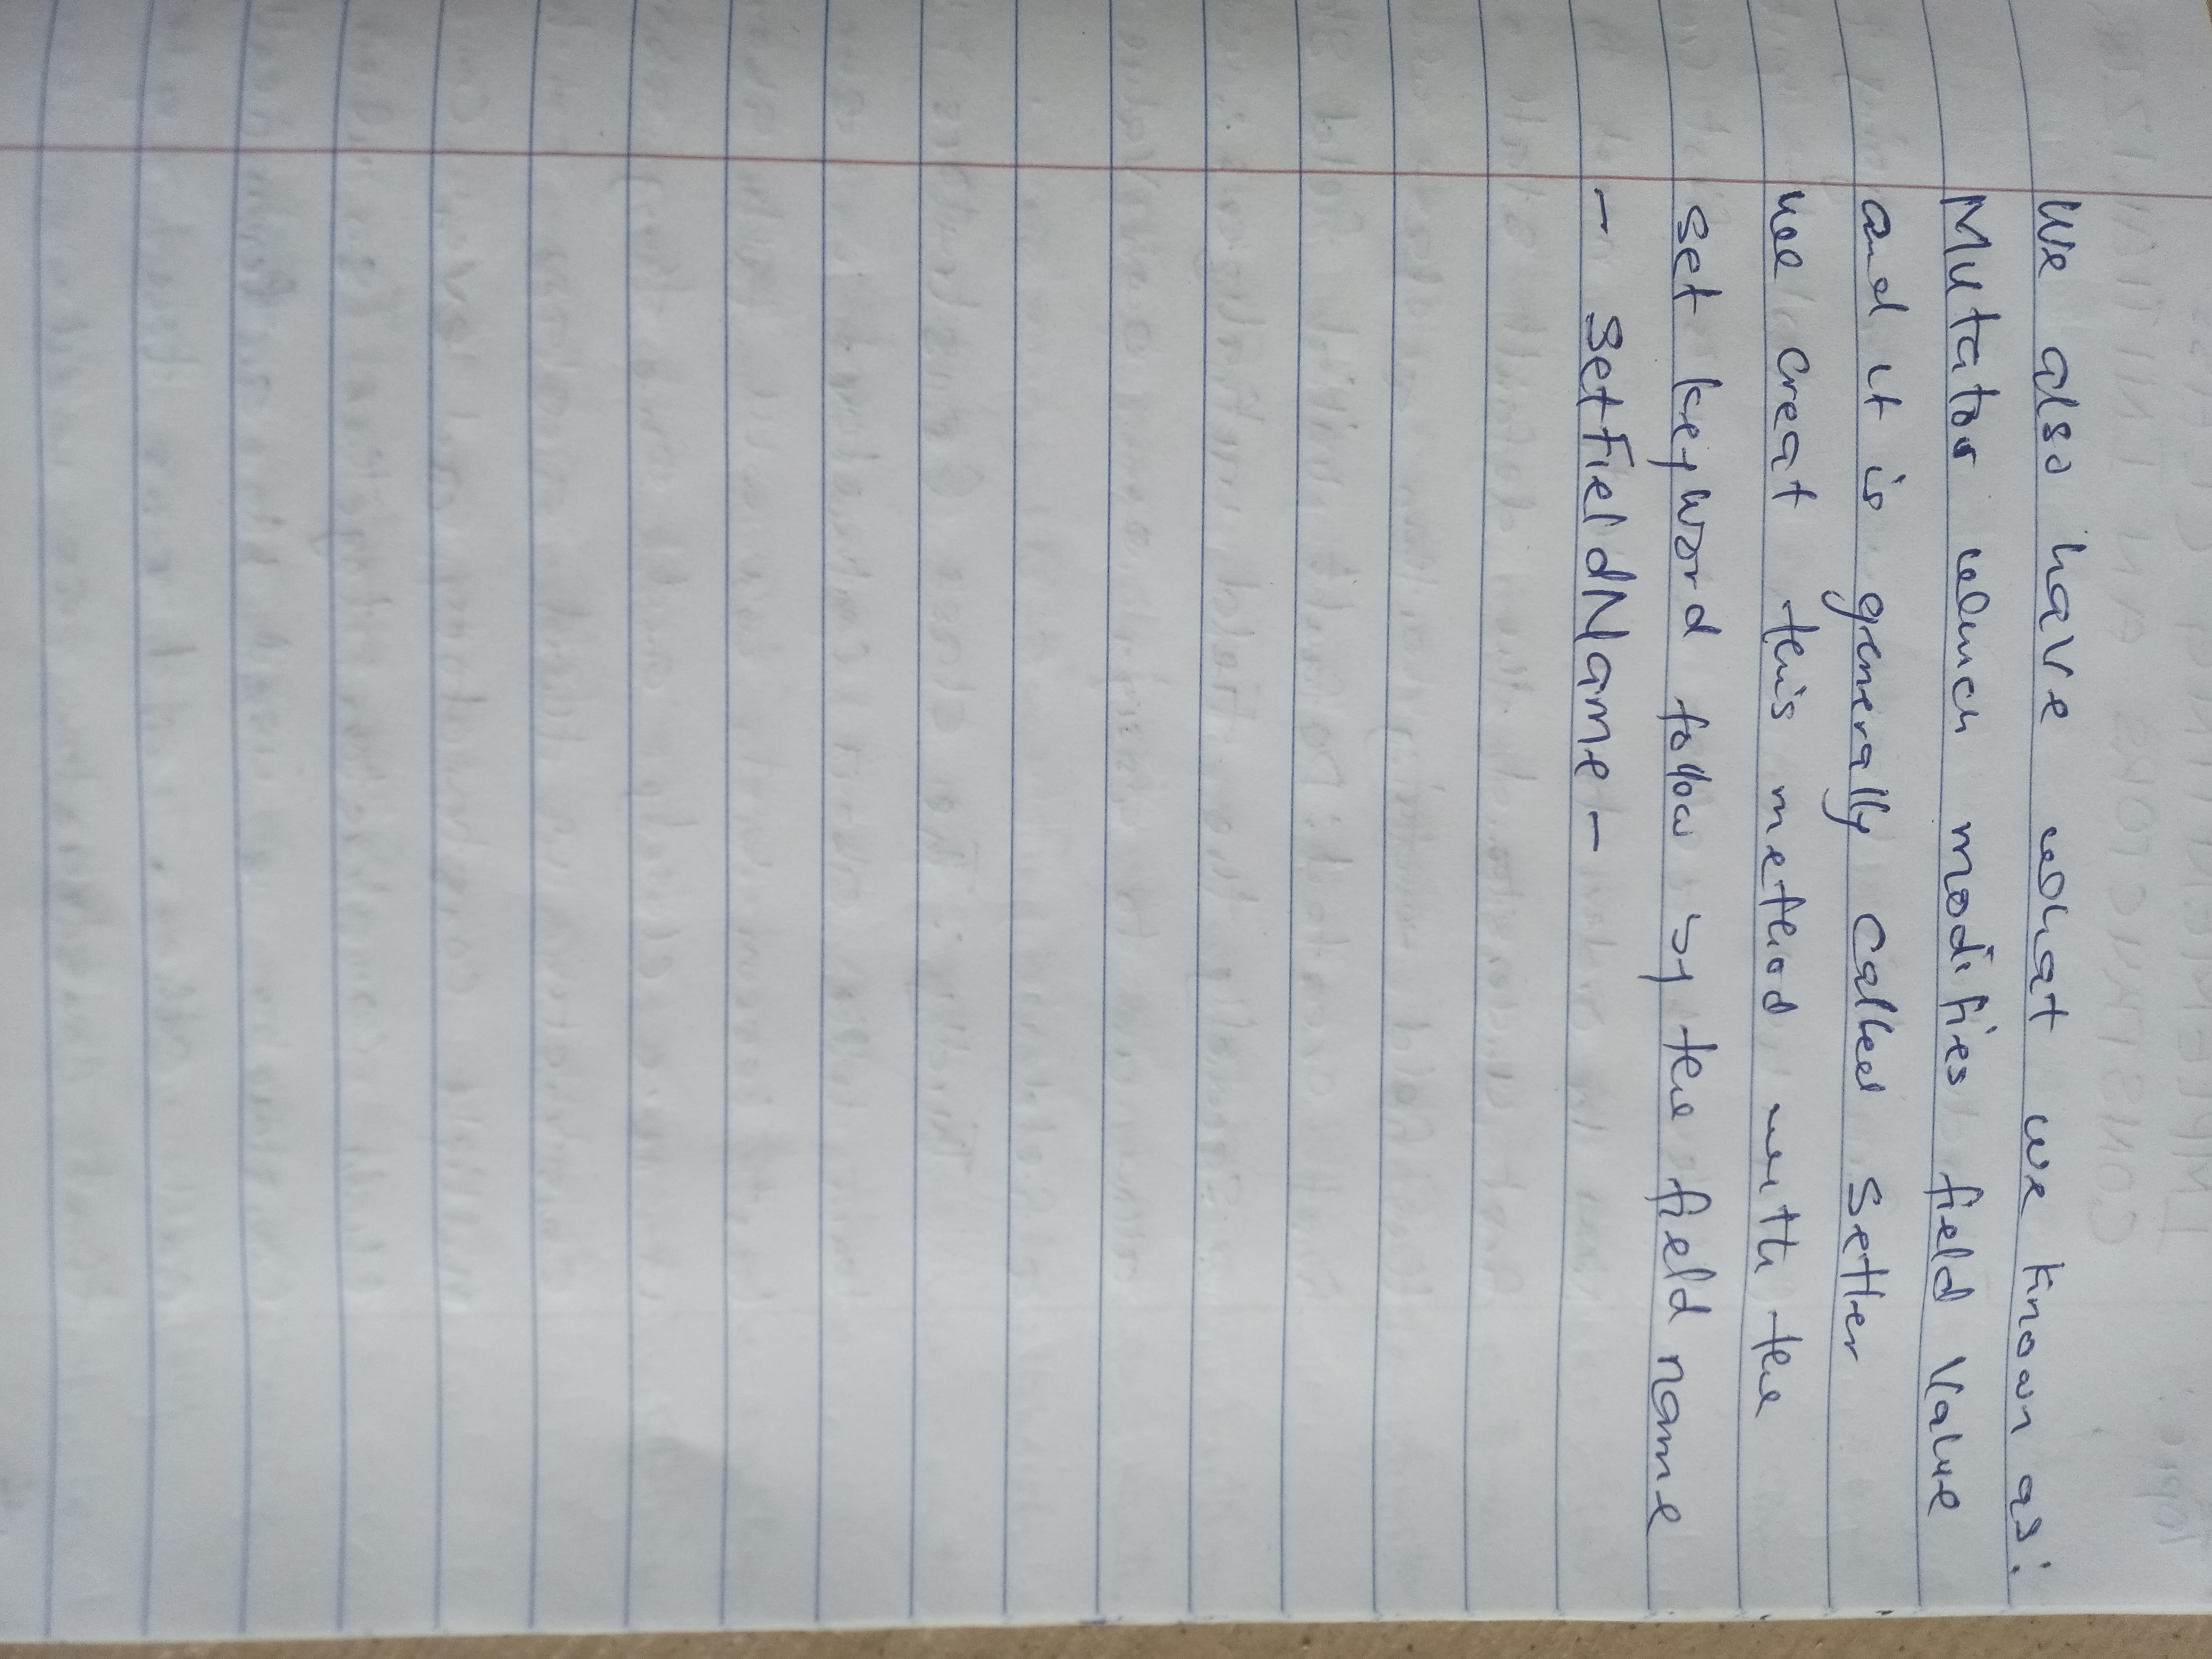 We also have what we known as:
Mutator which modifies field value
and it is generally called setter
we creat this method with the
set keyword follow by the field name
- setFieldName -